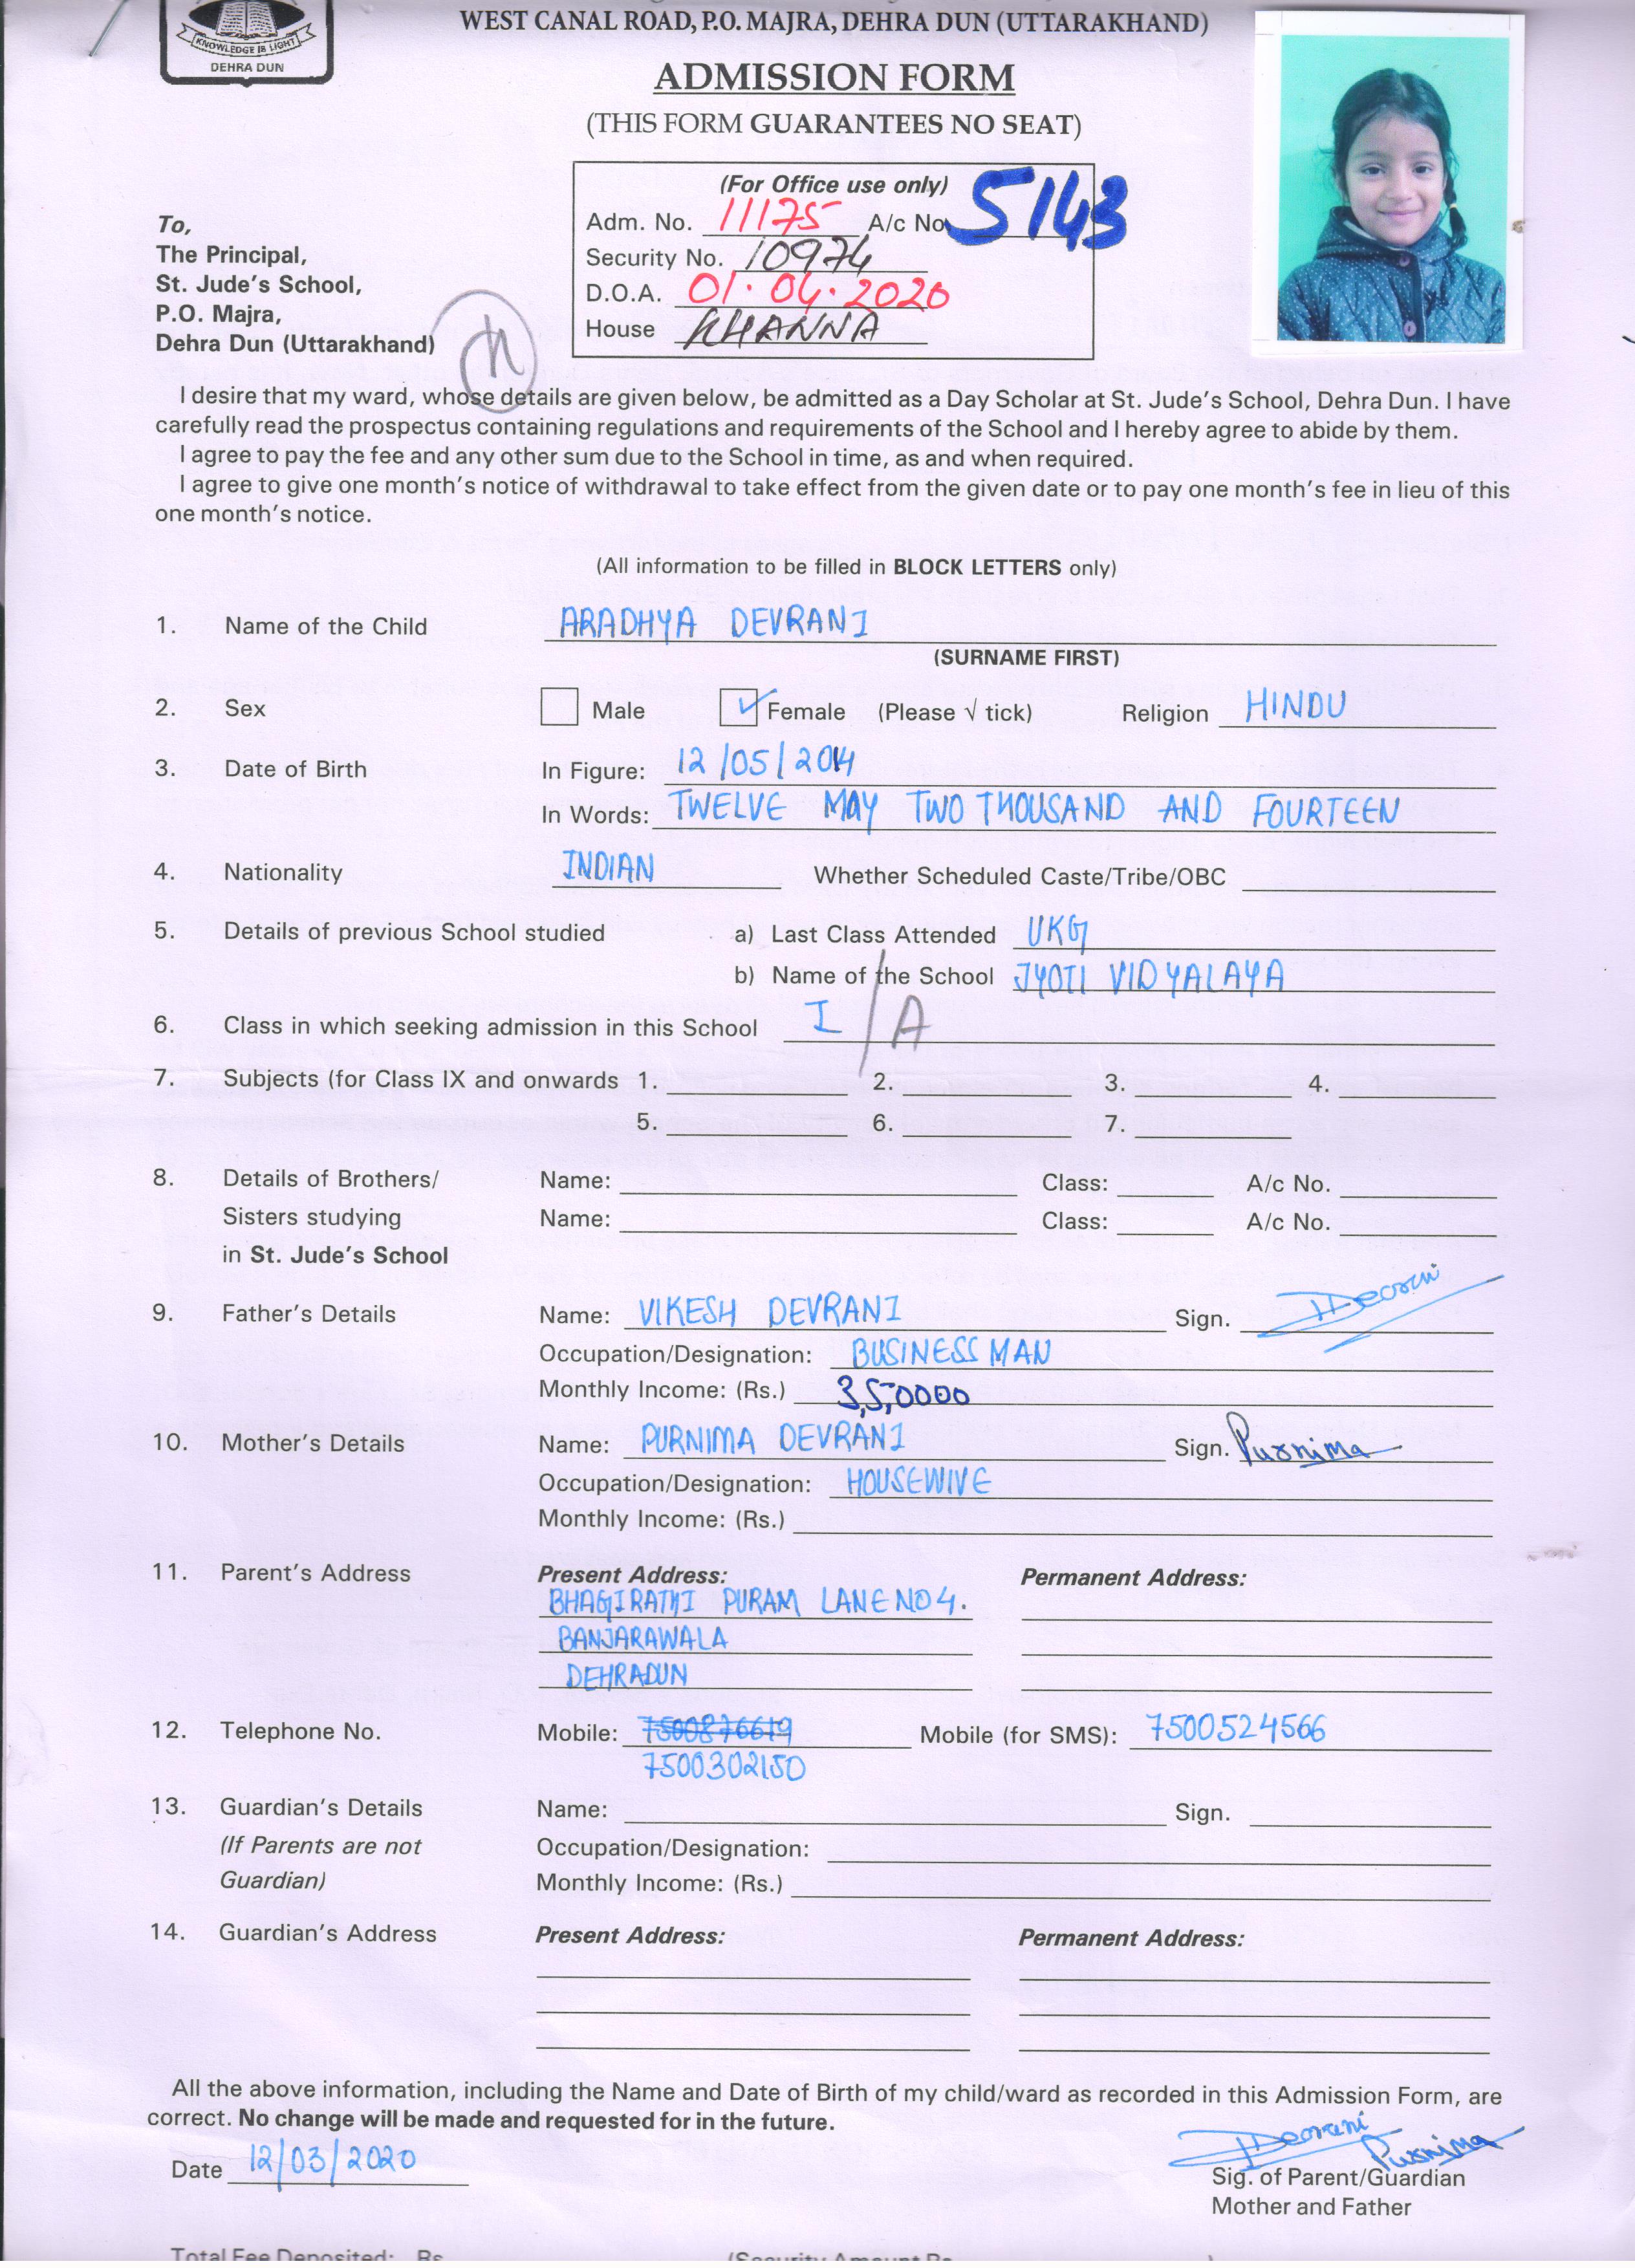 KNOWLEDGE IS LIGHT
DEHRA DUN
WEST CANAL ROAD, P.O. MAJRA, DEHRA DUN (UTTARAKHAND)
ADMISSION FORM
(THIS FORM GUARANTEES NO SEAT)
(For Office use only)
Adm. No. 11175 A/c No 5143
Security No. 10974
D.O.A. 01.04.2020
House KHANNA
To,
The Principal,
St. Jude's School,
P.O. Majra,
Dehra Dun (Uttarakhand)
I desire that my ward, whose details are given below, be admitted as a Day Scholar at St. Jude's School, Dehra Dun. I have
carefully read the prospectus containing regulations and requirements of the School and I hereby agree to abide by them.
I agree to pay the fee and any other sum due to the School in time, as and when required.
I agree to give one month's notice of withdrawal to take effect from the given date or to pay one month's fee in lieu of this
one month's notice.
(All information to be filled in BLOCK LETTERS only)
1. Name of the Child ARADHYA DEVRANI
(SURNAME FIRST)
2. Sex Male ✓ Female (Please √ tick) Religion HINDU
3. Date of Birth In Figure: 12/05/2014
In Words: TWELVE MAY TWO THOUSAND AND FOURTEEN
4. Nationality INDIAN Whether Scheduled Caste/Tribe/OBC
5. Details of previous School studied a) Last Class Attended UKG
b) Name of the School JYOTI VIDYALAYA
6. Class in which seeking admission in this School I/A
7. Subjects (for Class IX and onwards 1. 2. 3. 4.
5. 6. 7.
8. Details of Brothers/ Name: Class: A/c No.
Sisters studying Name: Class: A/c No.
in St. Jude's School
9. Father's Details Name: VIKESH DEVRANI Sign.
Occupation/Designation: BUSINESS MAN
Monthly Income: (Rs.) 3,5,0000
10. Mother's Details Name: PURNIMA DEVRANI Sign. Purnima
Occupation/Designation: HOUSEWIVE
Monthly Income: (Rs.)
11. Parent's Address Present Address: Permanent Address:
BHAGIRATHI PURAM LANE NO 4.
BANJARAWALA
DEHRADUN
12. Telephone No. Mobile: 7500876619 Mobile (for SMS): 7500524566
7500302150
13. Guardian's Details Name: Sign.
(If Parents are not Occupation/Designation:
Guardian) Monthly Income: (Rs.)
14. Guardian's Address Present Address: Permanent Address:
All the above information, including the Name and Date of Birth of my child/ward as recorded in this Admission Form, are
correct. No change will be made and requested for in the future.
Date 12/03/2020 Purnima
Sig. of Parent/Guardian
Mother and Father
Total Fee Deposited: Rs. (Security Amount Rs. )